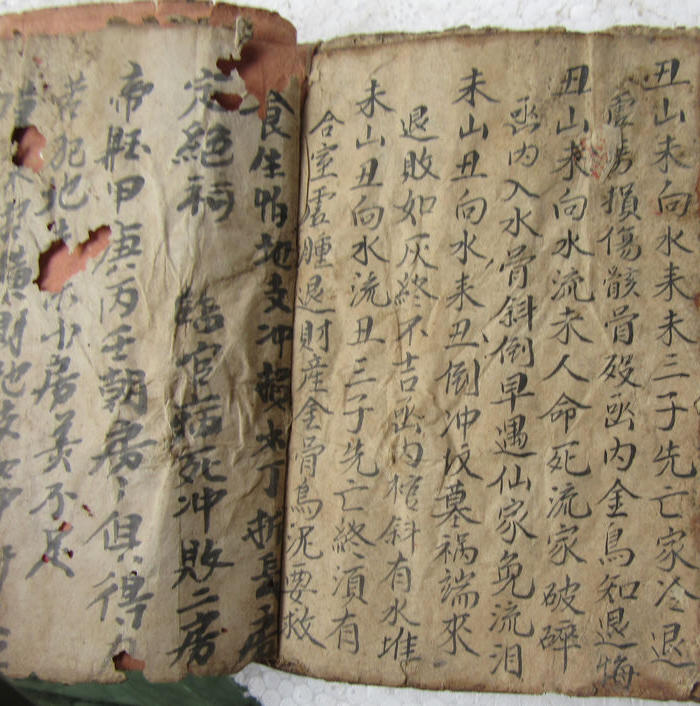 丑山未向水来未三子先亡家冷退
虚勞損傷骸骨殁凾内金鳥知退悔
丑山未向水流未人命死流家破碎
凾内入水骨斜倒早遇仙家免流泪
未山丑向水来丑倒冲坟墓祸端來
退敗如灰終不吉凾内棺斜有水堆
未山丑向水流丑三子先亡終須有
合室虚腫退財産金骨鳥泥要救
食生怕地支冲 木丁折長房
定絕祠 臨官病死冲敗二房
帝旺甲庚丙壬朝房〻俱得
若犯地 小房羙不足
則地支